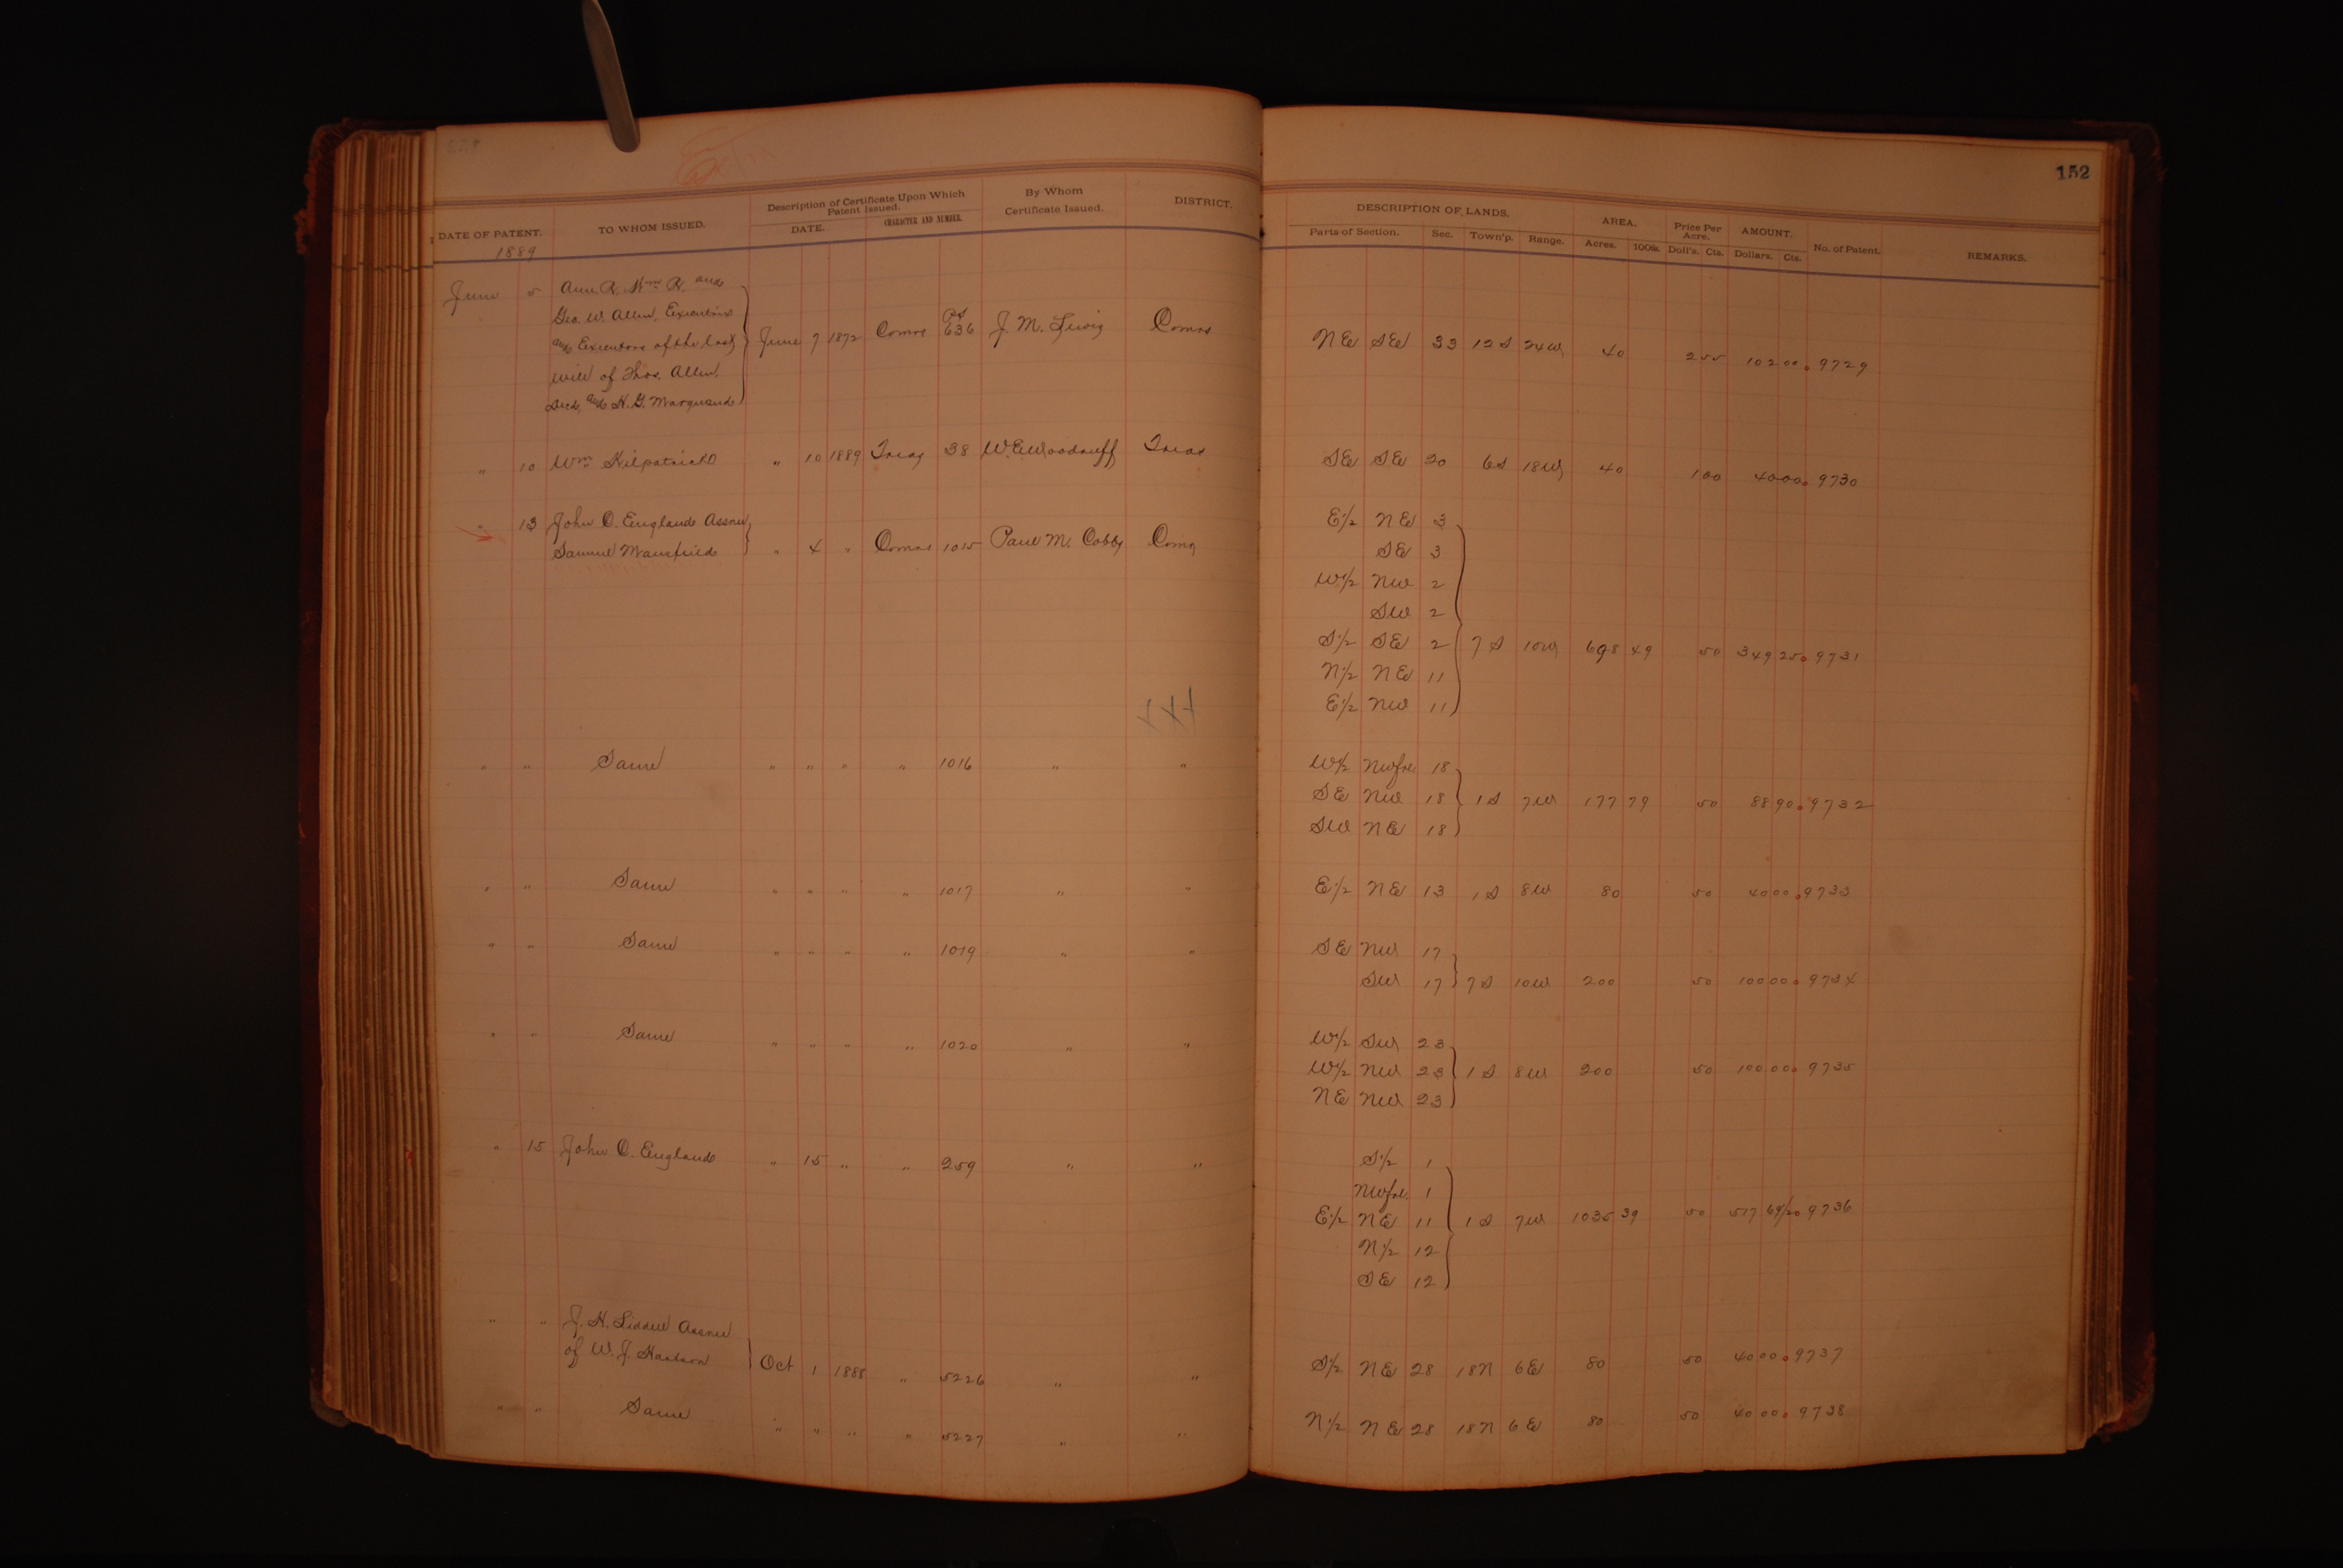 152
DATE OF PATENT. TO WHOM ISSUED. Description of Certificate Upon Which Patent Issued. DATE. CHARACTER AND NUMBER. By Whom Certificate Issued. DISTRICT.
DESCRIPTION OF LANDS. Parts of Section. Sec. Town'p. Range. AREA. Acres. 100ths. Price Per Acre. Doll's. Cts. AMOUNT. Dollars. Cts. No. of Patent. REMARKS.
1889
June 5 Ann R. Wm R. and
Geo. W. Allen, Executrix
and Executors of the last
will of Thos. Allen,
Decd, and H. G. Marquand
June 7 1872 Comrs 636 J. M. Lewis Comrs NE SE 33 12 S 24W 40 2 55 102 00 9729
" 10 Wm Kilpatrick " 10 1889 Treas 38 W.E.Woodruff Treas SE SE 20 6S 18W 40 1 00 40 00 9730
" 13 John O. England Assnee
Samuel Mansfield
" 4 " Comrs 1015 Paul M. Cobbs Comr E1/2 NE 3
SE 3
W1/2 NW 2
SW 2
S1/2 SE 2 7 S 10W 698 49 50 349 25 9731
N1/2 NE 11
E1/2 NW 11
" " Same " " " " 1016 " " W1/2 NWfrl 18
SE NW 18 1 S 7W 177 79 50 88 90 9732
SW NE 18
" " Same " " " " 1017 " " E1/2 NE 13 1 S 8W 80 50 40 00 9733
" " Same " " " " 1019 " " SE NW 17
SW 17 7 S 10W 200 50 100 00 9734
" " Same " " " " 1020 " " W1/2 SW 23
W1/2 NW 23 1 S 8W 200 50 100 00 9735
NE NW 23
" 15 John O. England " 15 " " 259 " " S1/2 1
NWfrl. 1
E1/2 NE 11 1 S 7W 1035 39 50 517 69/20 9736
N1/2 12
SE 12
" " J. H. Liddell Assnee
of W. J.
Oct 1 1888 " 5226 " " S1/2 NE 28 18N 6E 80 50 40 00 9737
" " Same " " " " 5227 " " N1/2 NE 28 18N 6E 80 50 40 00 9738